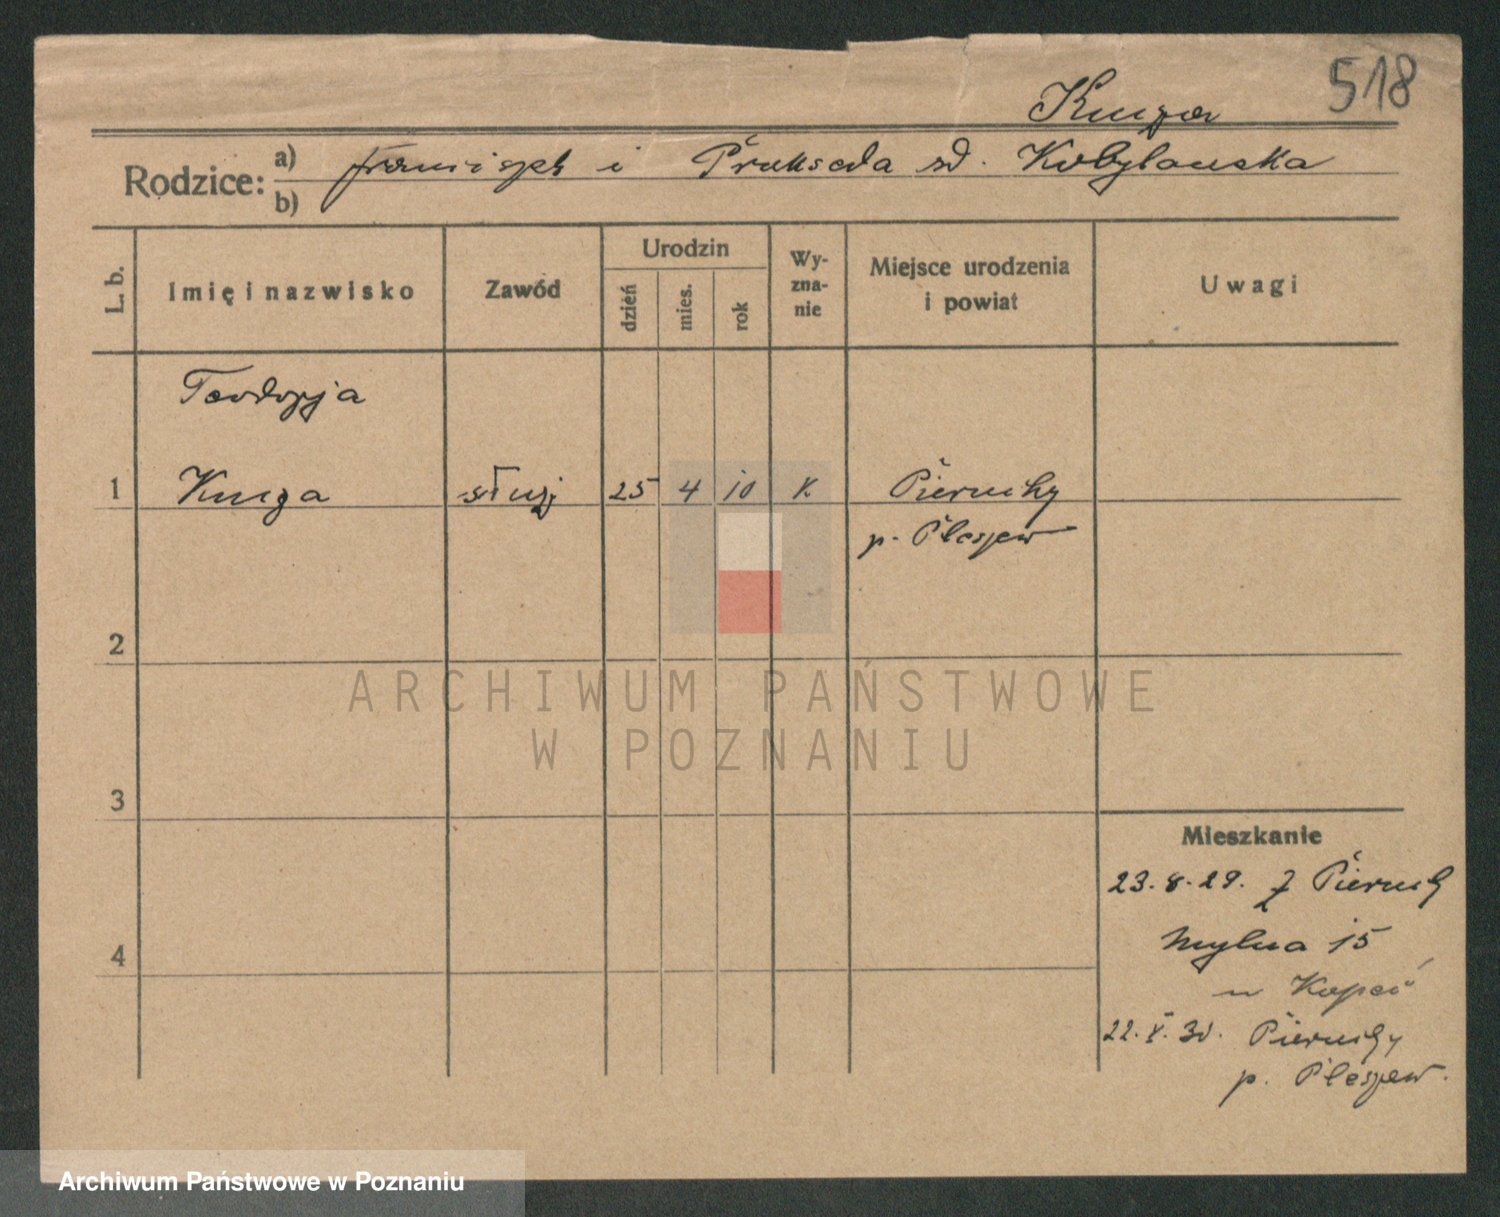 518
Kmyza
Rodzice: a) Franciszek i Prakseda zd. Kobylańska
b)
L. b.
Imię i nazwisko
Zawód
Urodzin
dzień
mies.
rok
Wy-
zna-
nie
Miejsce urodzenia
i powiat
Uwagi
Teodozja
1 służ 25 4 10 K Pieruchy
p. Pleszew
2
3
4
Mieszkanie
23.8.29. z Pieruch
Mylna 15
u Kopeć
22.X.30. Pieruchy
p. Pleszew.
ARCHIWUM PAŃSTWOWE
W POZNANIU
Archiwum Państwowe w Poznaniu